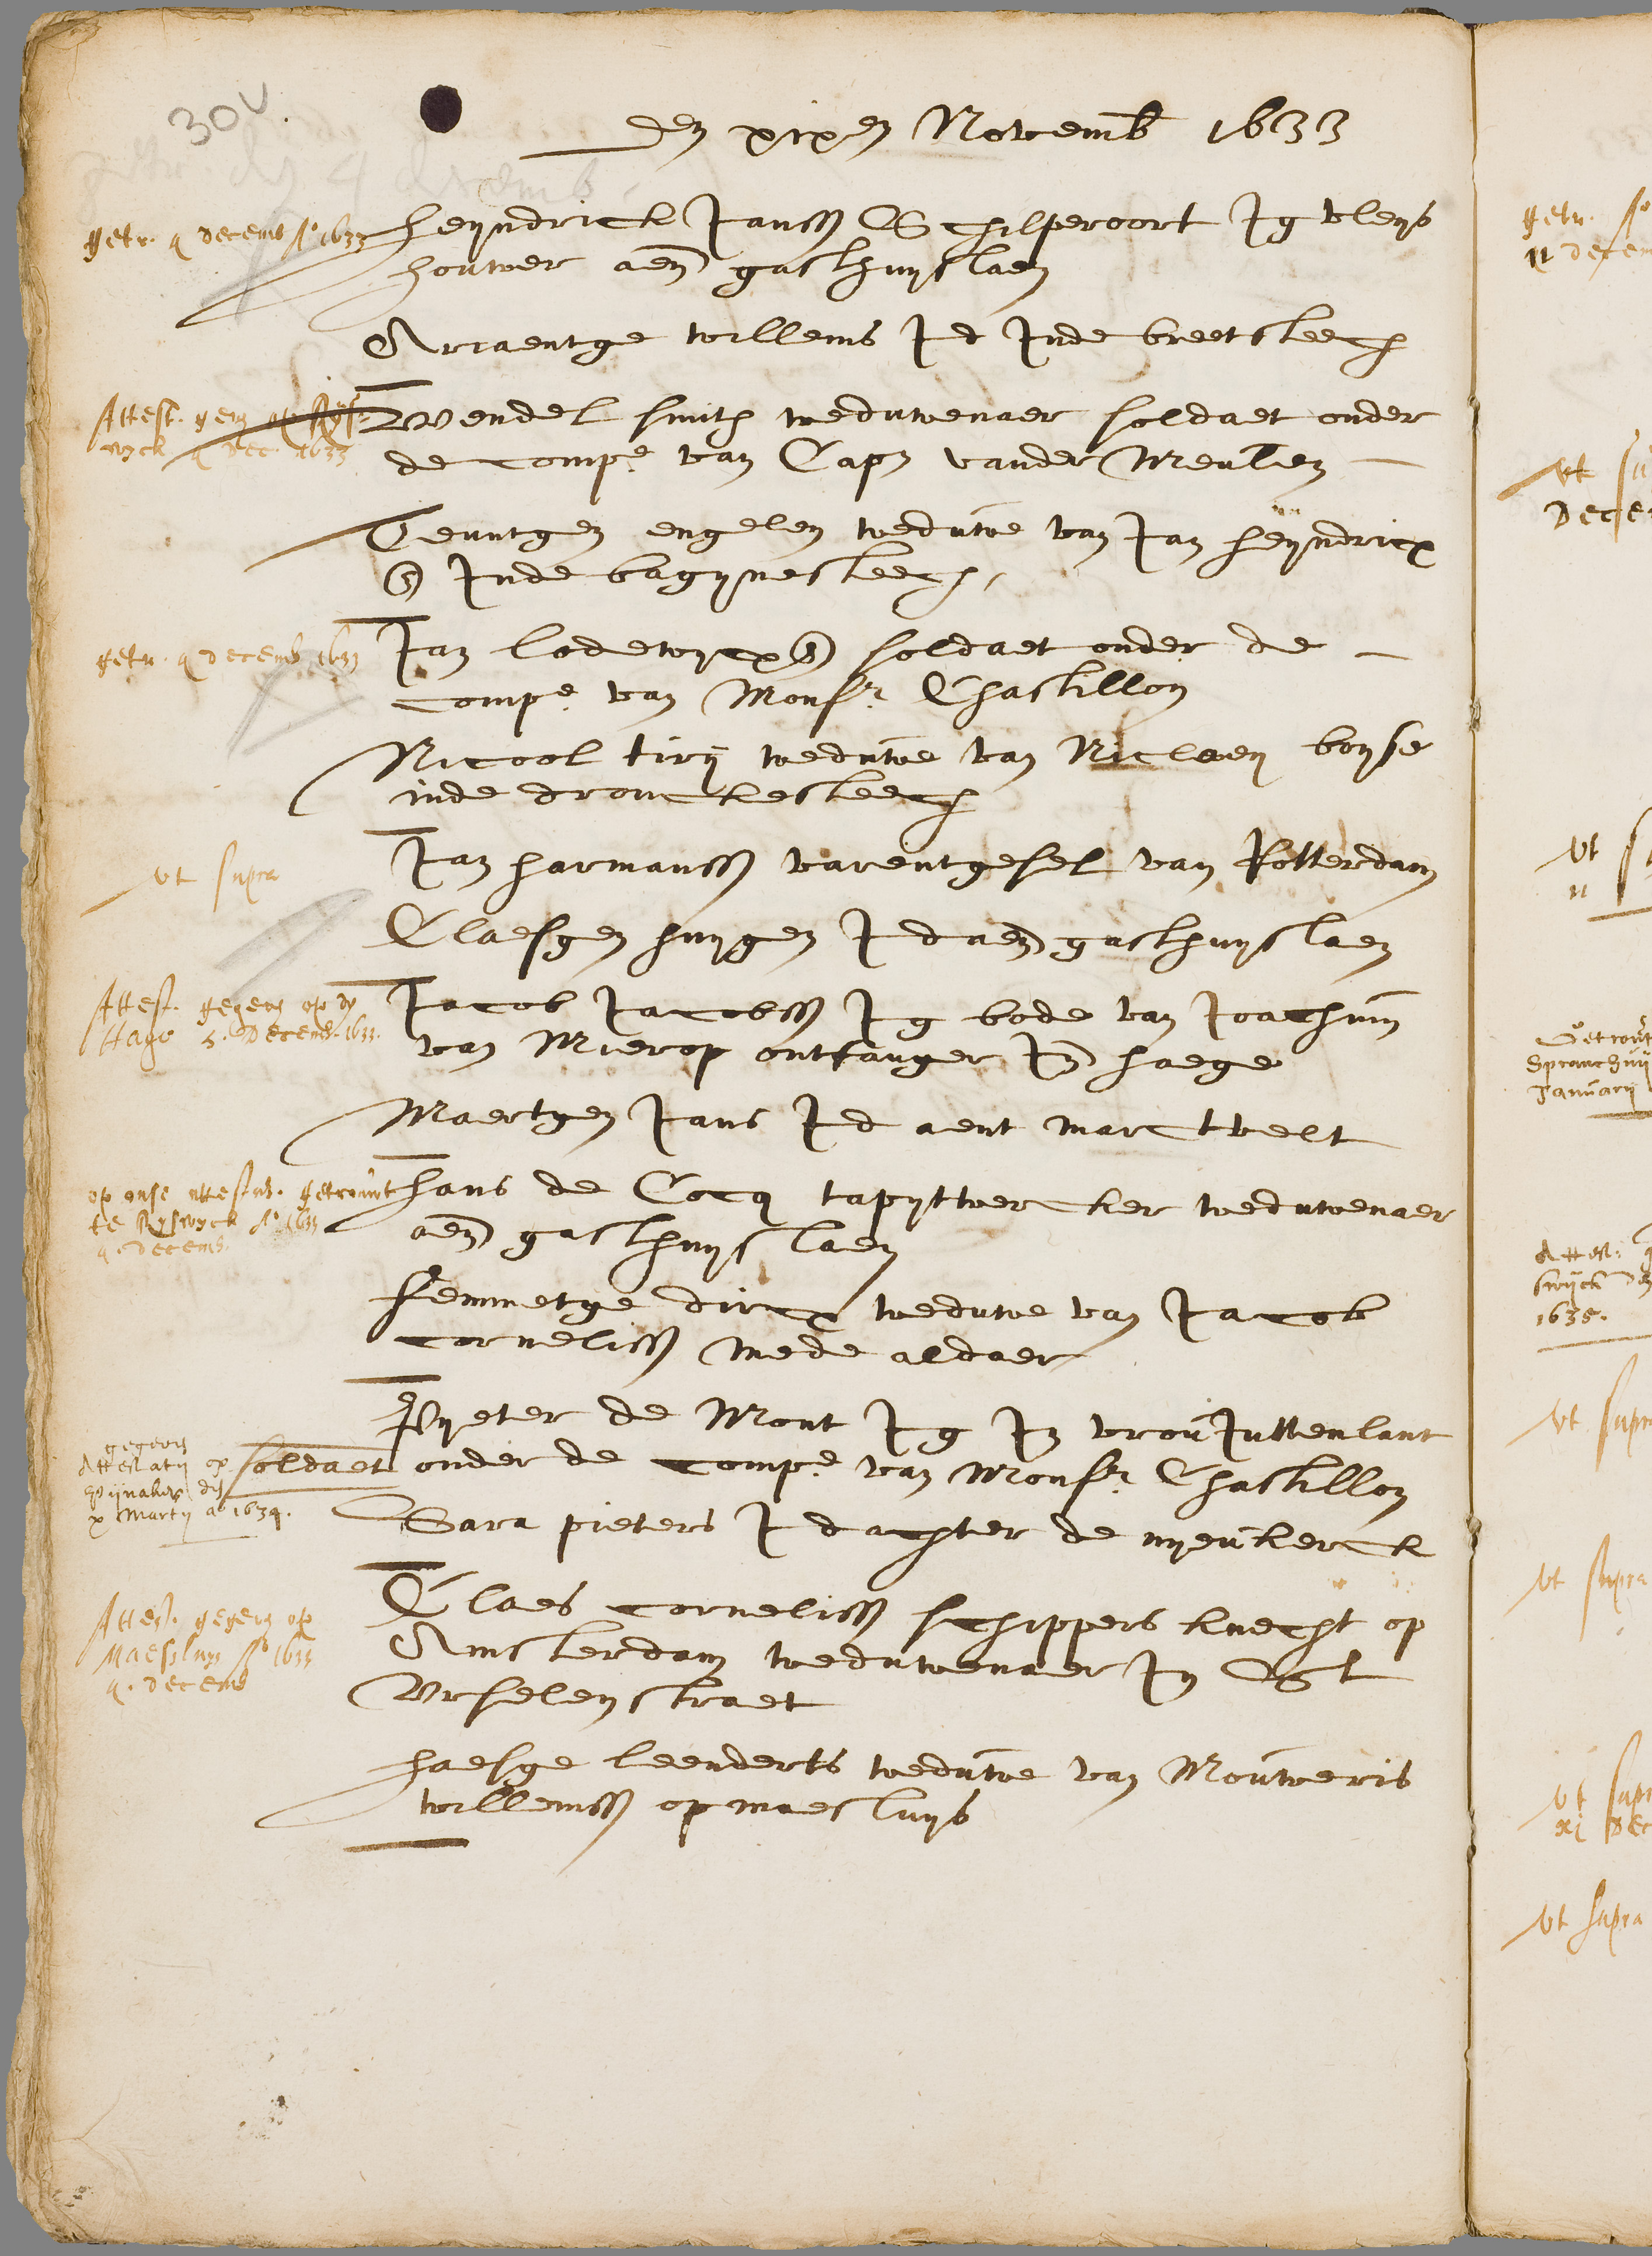 30v.
den xixen Novemb 1633
getr. 4 decemb Ao 1633
heyndrick Janss Schilperoort Jg vleys
houwer aen gasthuyslaen
Ariaentge willems Jd Inde breetsteech
Attest. gegen op Rys
wyck 4 Dec. 1633
Wendel smith weduwenaer soldaet onder
de compe van Capn vander Meulen
Teuntgen engelen weduwe van Jan heyndricx
s Inde bagynesteech
getr. 4 decemb 1633
Jan lodewycx s soldaet onder de
compe van Monsr Chastillon
Nicool tirij weduwe van Niclaey boyse
inde dronckesteech
vt supra
Jan harmanss varentgesel van Rotterdam
Claesgen huygen Jd aen gasthuyslaen
Attest. gegeven op de
Hage 5. Decemb. 1633.
Jacob Jacobss Jg bode van Joachim
van Mierop ontfanger In haege
Maertgen Jans Jd aent marctvelt
op onse attestat. getrout
te Ryswyck Ao 1633
4. decemb.
hans de Cocq tapytwercker weduwenaer
aen gasthuyslaen
femmetge dircx weduwe van Jacob
corneliss mede aldaer
Pyeter de Mont Jg In vrou Juttenlant
gegeven
Attestaty op
Pijnaker den
x Marty ao 1634.
soldaet onder de compe van Monsr Chastillon
Sara pieters Jd achter de nyeukerck
Attest. gegeven op
Maeslуys Ao 1633
4. decemb
Claes corneliss schippers knecht op
Amsterdam weduwenaer In St
Vrselen straet
haesge leenderts weduwe van Mouweris
willemss op maesluys
getr. Ao
11 decem
Vt su
Decem
Vt
11
Getrout
January
Attest.
swijck
1635.
Vt supra
Vt supra
Vt supr
xi Dec
Vt supra